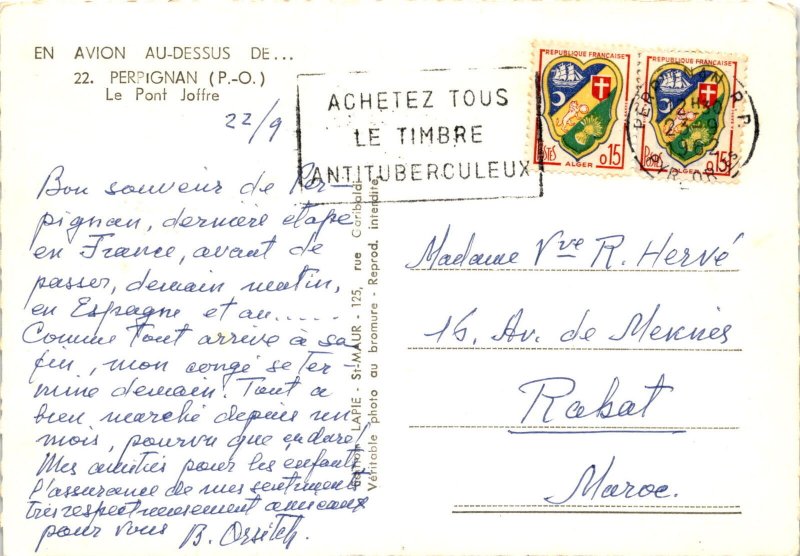 EN AVION AU-DESSUS DE...
22. PERPIGNAN (P.-O.)
Le Pont Joffre
22/9
ACHETEZ TOUS
LE TIMBRE
ANTITUBERCULEUX
REPUBLIQUE FRANÇAISE
POSTES
0,15
ALGER
REPUBLIQUE FRANÇAISE
0,15
ALGER
Bon souvenir de Per-
pignan, dernière étape
en France, avant de
passer, demain matin,
en Espagne et au.....
Comme tout arrive à sa
fin, mon congé se ter-
mine demain! Tout a
bien marché depuis un
mois, pourvu que ça dure!
Mes amitiés pour les enfants
l'assurance de mes sentiments
très respectueusement amicaux
pour vous B. Orsitch.
LAPIE - St-MAUR - 125, rue Garibaldi
Véritable photo au bromure - Reprod. interdite
Madame Vve R. Hervé
16, Av. de Meknès
Rabat
Maroc.